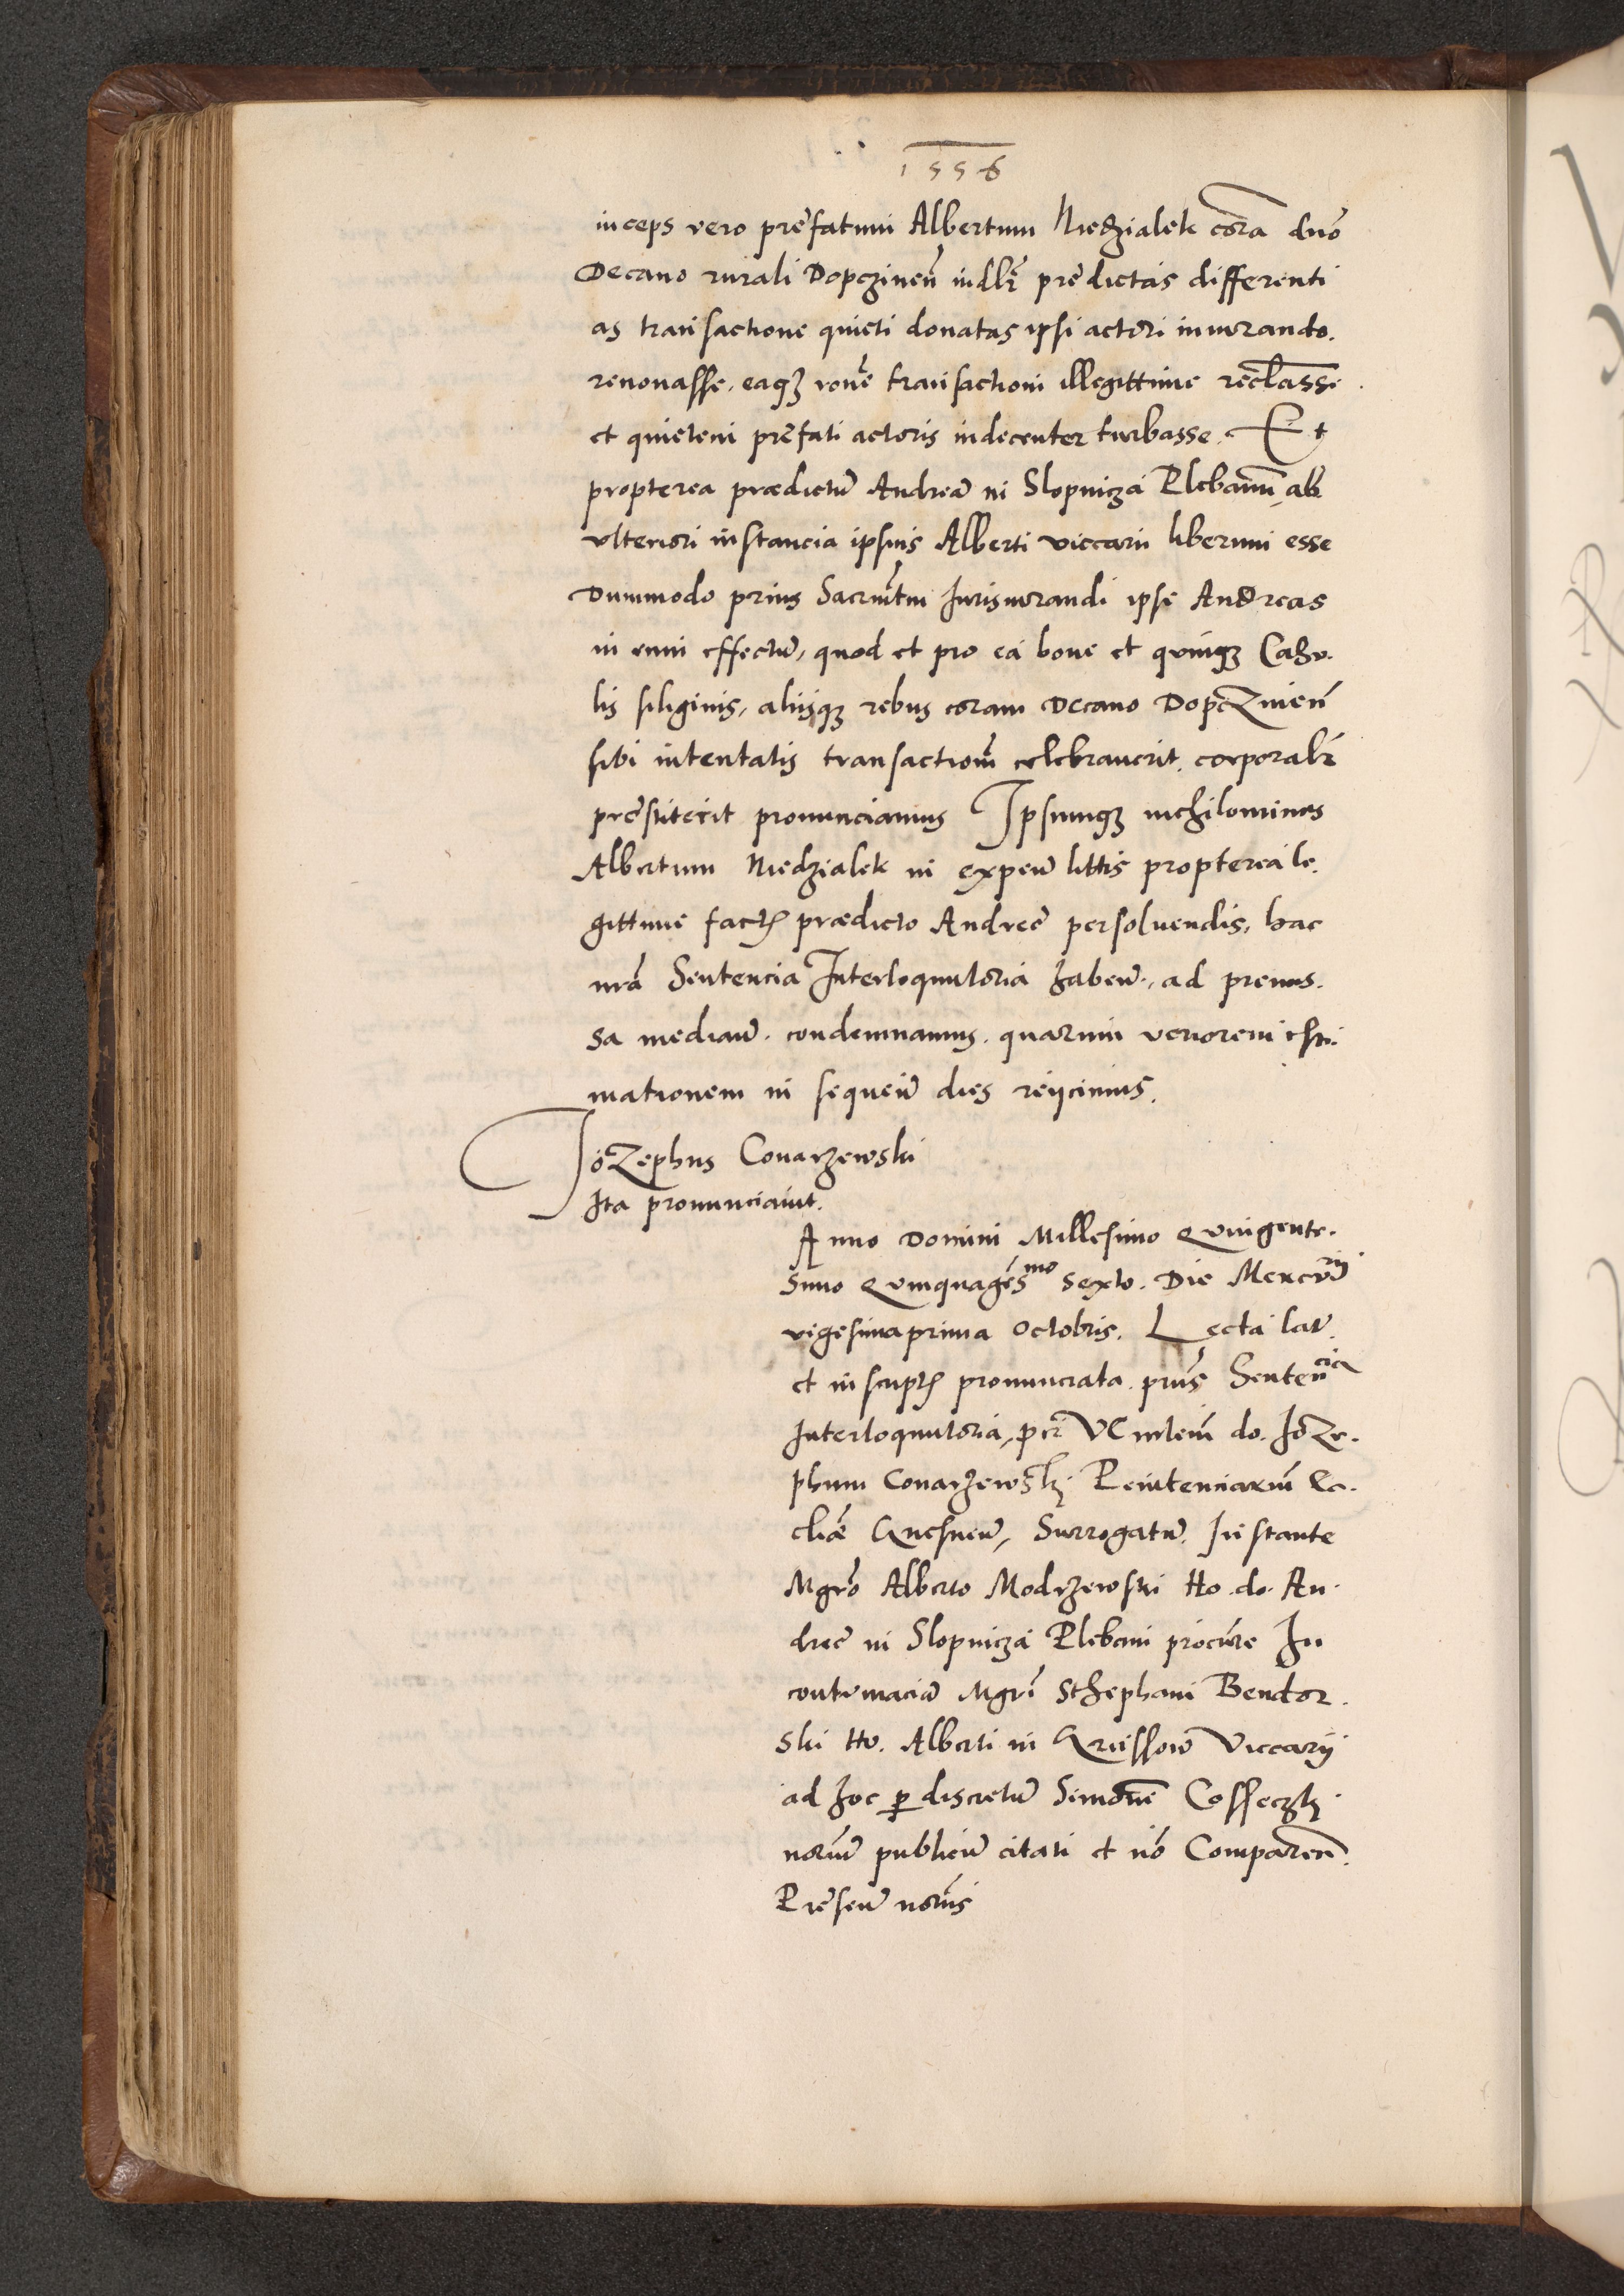 1556
inceps vero prefatum Albertum Niedzialek cora dno
Decano rurali Dopczinen indlr predictas differenti
as transactione quieti donatas ipsi actori iniurando.
renovasse, eaqз rone transactioni illegittime reclasse
et quietem prefati actoris indecenter turbasse. Et
propterea prædictu Andrea in Slopnicza Plebanu ab
ulteriori instancia ipsius Alberti viccarii liberum esse
Dummodo prius Sacrmtm Iurisiurandi ipse Andreas
in eum effectu, quod et pro ea bove et quinqз Cahu.
lis siliginis, aliisqз rebus coram Decano Dopczinen
sibi intentatis transactionem celebraverit, corporalr
prestiterit pronunciamus Ipsumqз nichilominus
Albertum Niedzialek in expen littis propterea le.
gittime factis prædicto Andree persolvendis, hac
nra Sentencia Interloqutoria haben., ad premis.
sa median. condemnamus. quarum veriorem esti.
mationem in sequen dies reiicimus.
Jozephus Conarzewski
Ita pronunciavit.
Anno Domini Millesimo Quingente.
simo Quinquagesmo Sexto. Die Mercurii
vigesimaprima Octobris. Lecta lat.
et in scriptis pronunciata. prns Sentencia
Interloqutoria, per do. Joze.
phum Conarzewski Penitenciarium
Gnesnen, Surrogatu. Instante
Mgro Alberto Modrzewski tto. do. An.
dree in Slopnicza Plebani procure In
contumacia Mgri Sthephani Bendor.
ski tto. Alberti in Viccarii
ad hoc p discretu Simone Cosseczki
norium publicu citati et no Comparen.
Presen notriis